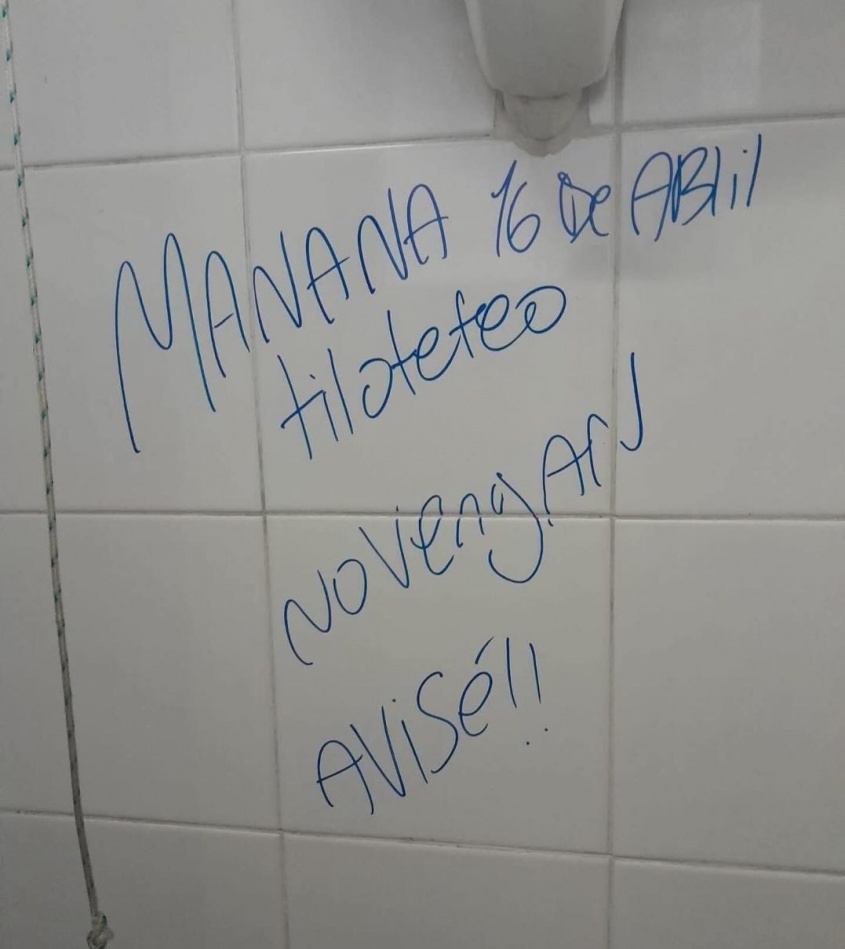 MANANA 16 De ABlil
tiloteteo
NOVengAN
AViSé!!